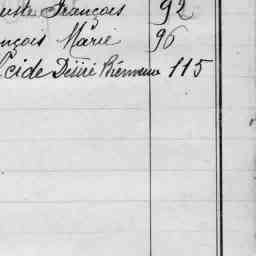 uste François 92
nçois Marie 96
cide Désiré Bienvenu 115